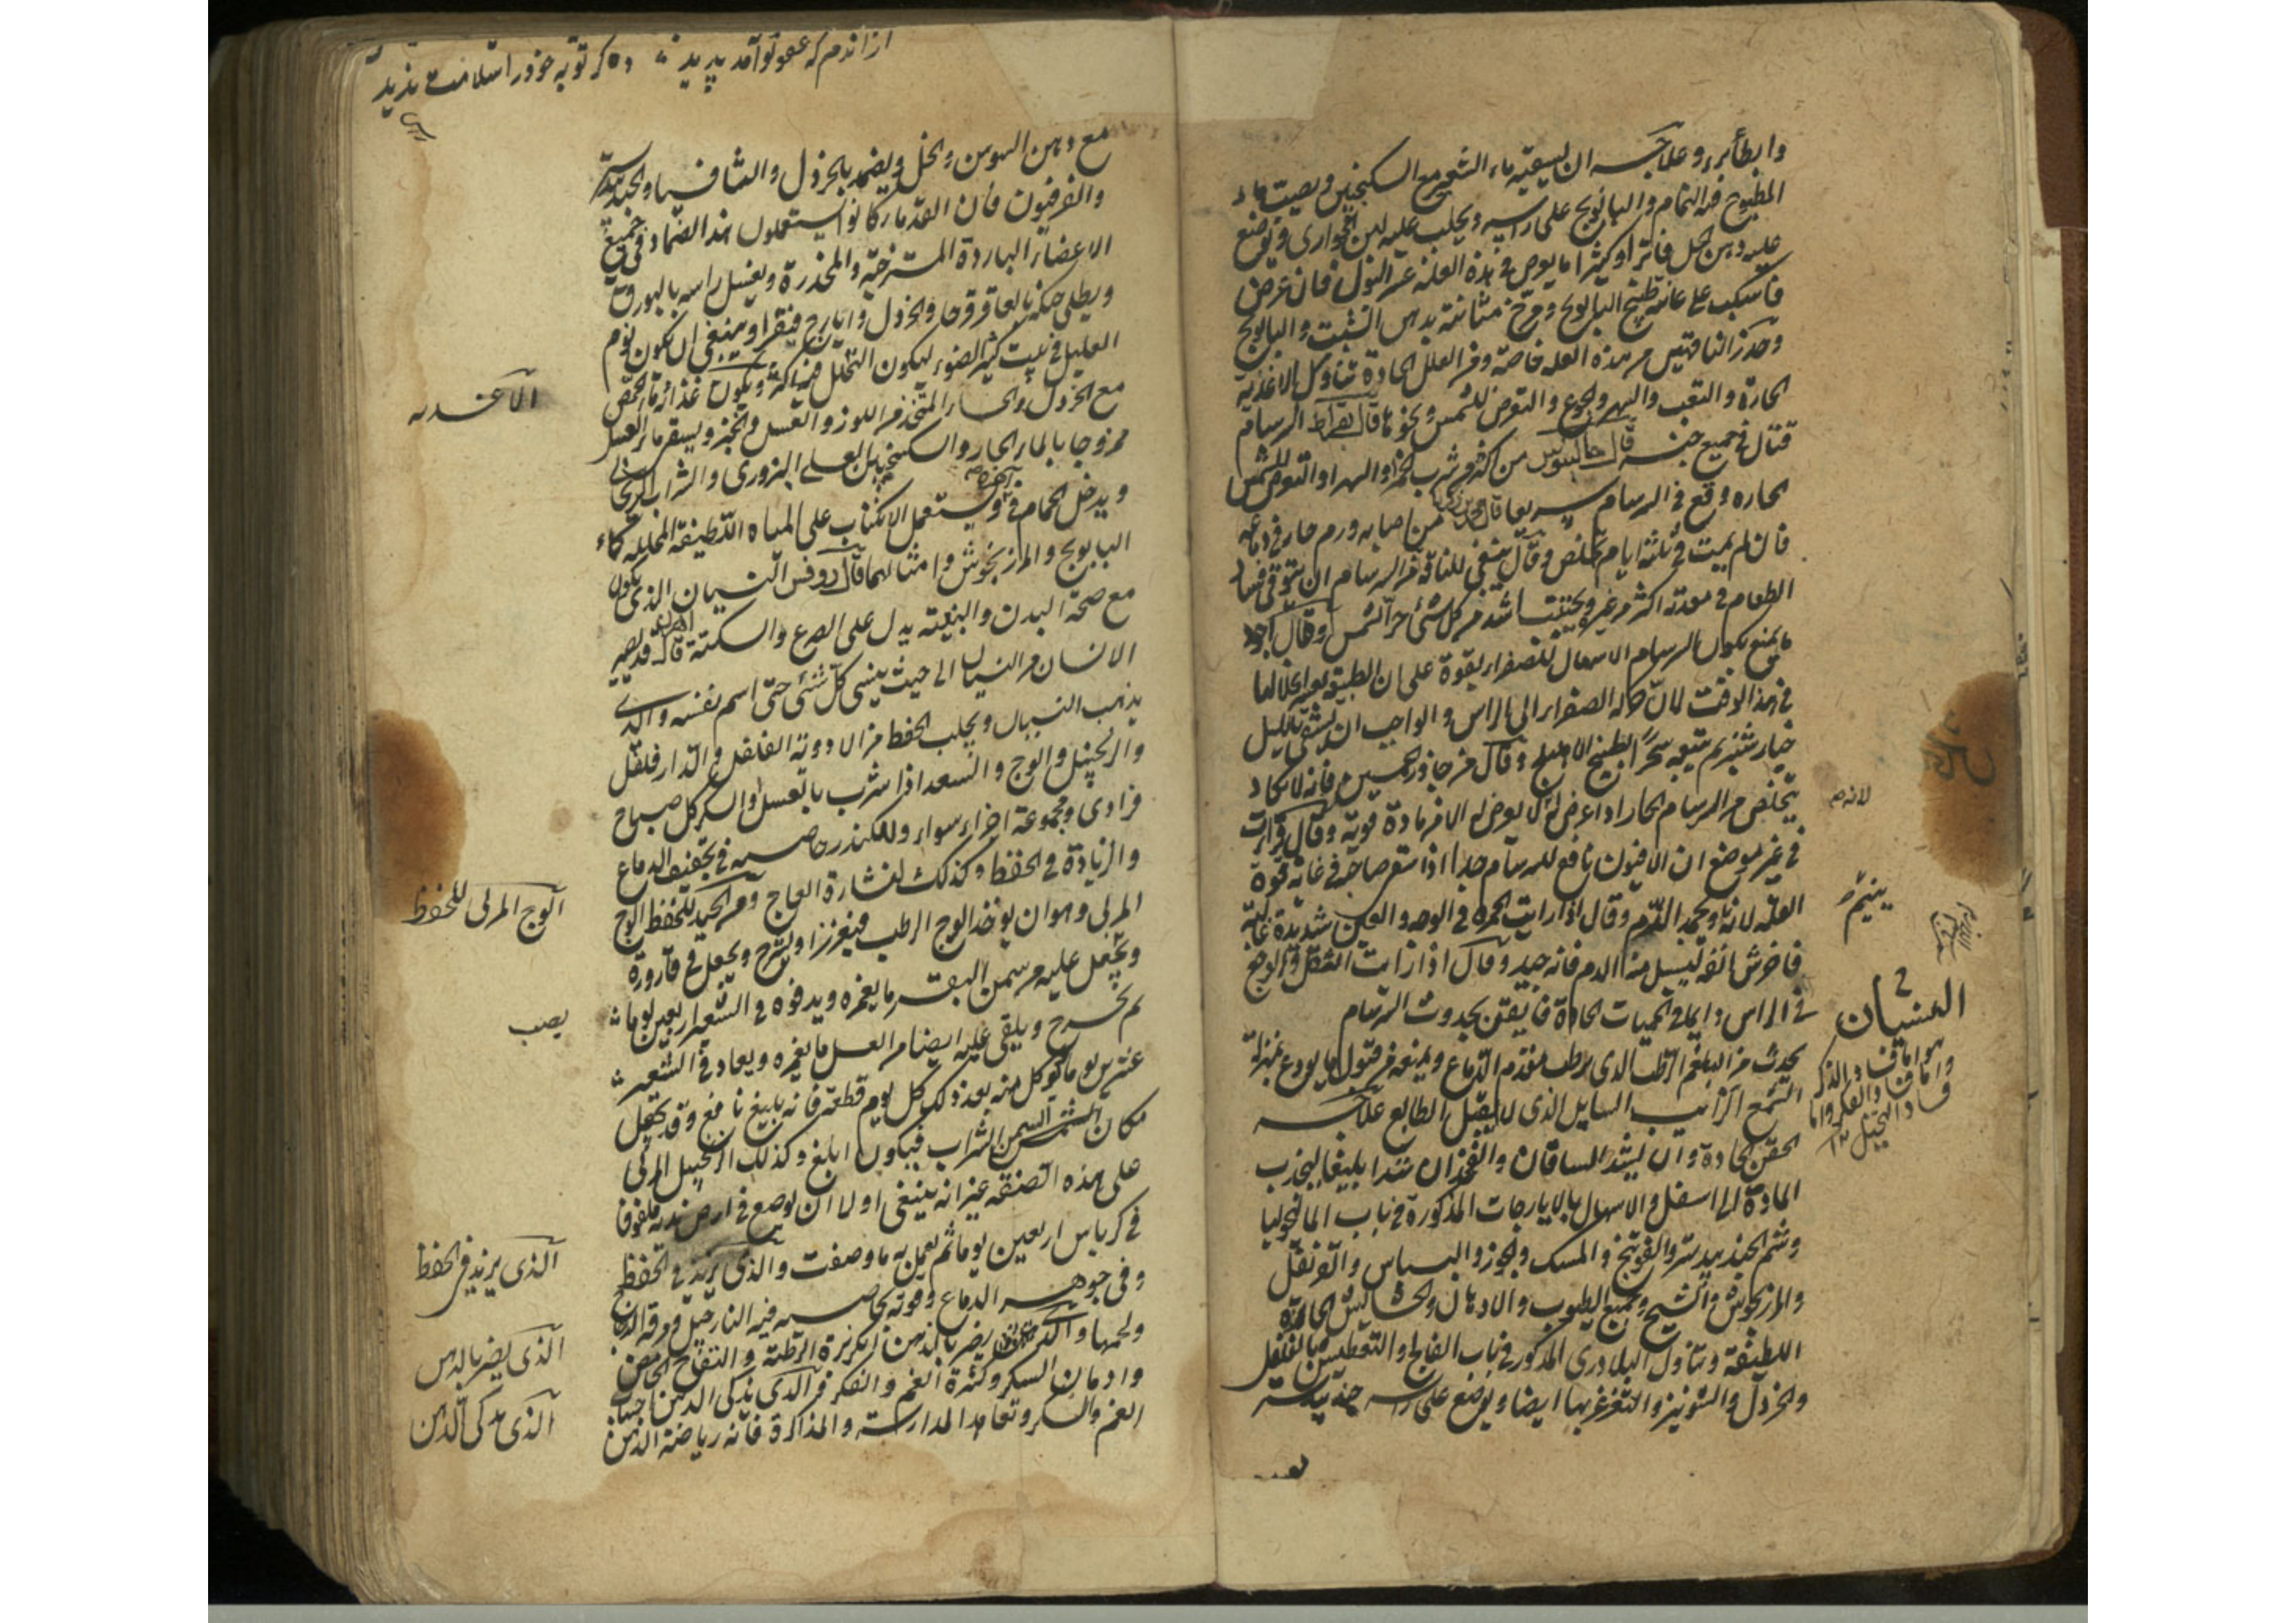 وابطأ برء وعلاجه ان يسقيه ماء الشعير مع السكنجبين ويصب ماء
المطبوخ فيه النمام والبابونج على راسه ويحلب عليه لبن الجوارى ويوضع
عليه دهن الخل فاترا وكثيرا ما يعرض فى هذه العلة عسر البول فان عرض
فاسكب على عانته طبيخ البابونج ومرخ مثانته بدهن الشبت والبابونج
وحذر الناقهين من هذه العله خاصة ومن العلل الحادة تناول الاغذية
الحارة والتعب والسهر والجوع والتعرض للشمس ونحوها قال بقراط السرسام
قتال فى جميع قال جالينوس من اكثر شرب الخمر او السهر او التعرض للشمس
الحاره وقع فى السرسام سريعا قال من اصابه ورم حار فى دماغه
فان لم يمت فى ثلثة ايام تخلص وقال ينبغى للناقه من السرسام ان يتوقى فساد
الطعام فى معدته اكثر من غيره ويجتنب اشد من كل شئ حر الشمس وقال اجود
ما يمنع بكون السرسام الاسهال للصفراء بقوة على ان الطبيعة
فى هذا الوقت لان حركة الصفراء الى الراس والواجب ان يسقى بالليل
خيار شنبر ثم يتبعه سحرا بطبيخ الاهليلج وقال من جاوز خمسين فانه لا يكاد
يتخلص من السرسام الحار اذا عرض له لا يعرض له الا من مادة قوية وقال قرأت
فى غير موضع ان الافيون نافع للسرسام جدا اذا سقى صاحبه فى غاية قوة
العلة لانه ويجمد الدم وقال اذا رايت الحمرة فى الوجه والعين شديدة غالبة
فاخرش انفه ليسيل منه الدم فانه جيد وقال اذا رايت الثقل والوجع
فى الراس دايما فى الحميات الحادة فايقن بحدوث السرسام
يحدث من البلغم الرطب الذى يرطب مقدم الدماغ ويمنعه من قبول ما يودع بمنزلة
الشمع الذائب السايل الذى لا يقبل الطابع علاجه
الحقن الحادة وان يشد الساقان والفخذان شدا بليغا ليجذب
المادة الى اسفل والاسهال بالايارجات المذكورة فى باب المالنخوليا
وشم الجندبيدستر والفوتنج والمسك والجوز والبسباس والقرنفل
والمرزنجوش والشيح وجميع الطيوب والادهان والحشائش الحادة
اللطيفة وتناول البلادرى المذكور فى باب الفالج والتعطيس بالفلفل
والخردل والشونيز والتغرغر بها ايضا ويوضع على راسه جندبيدستر
لانه
ينيم
النسيان
هو اما فساد الذكر
واما فساد الفكر واما
فساد التخيل ١٢
ازاندم كه عفو تو آمد پديد
مع دهن السوسن والخل ويضمد بالخردل والثافسيا والجندبيدستر
والفرفيون فان القدماء كانوا يستعملون هذا الضماد فى جميع
الاعضاء الباردة المسترخية والمخدرة ويغسل راسه بالبورق
ويطلى حنكه بالعاقرقرحا والخردل وايارج فيقرا وينبغى ان يكون نوم
العليل فى بيت كثير الضوء ليكون التحلل فيه اكثر ويكون غذائه ماء الحمص
مع الخردل والحساء المتخذ من اللوز والعسل والخبز ويسقى ماء العسل
ممزوجا بالماء الحار والسكنجبين العسلى البزورى والشراب الريحانى
ويدخل الحمام فى آخره ويستعمل الانكباب على المياه اللطيفة المحللة كماء
البابونج والمرزنجوش وامثالهما قال روفس النسيان الذى يكون
مع صحة البدن والبغتة يدل على الصرع والسكتة قال قد يصير
الانسان من النسيان الى حيث ينسى كل شئ حتى اسم نفسه والذى
يذهب النسيان ويجلب الحفظ من الادوية الفلفل والدارفلفل
والزنجبيل والوج والسعد اذا شرب بالعسل والسكر كل صباح
فرادى ومجموعة اجزاء سواء وللكندر خاصية فى تجفيف الدماغ
والزيادة فى الحفظ وكذلك لنشارة العاج ومن الجيد للحفظ الوج
المربى وهو ان يوخذ الوج الرطب فيغرز او يشرح ويجعل فى قارورة
ويجعل عليه من سمن البقر ما يغمره ويدفنوه فى الشعير اربعين يوما
ثم يخرج ويلقى عليه ايضا من العسل ما يغمره ويعاد فى الشعير
عشرين يوما تؤكل منه بعد ذلك كل يوم قطعة فانه بليغ نافع وقد يجعل
مكان السمن الشراب فيكون ابلغ وكذلك الزنجبيل المربى
على هذه الصنعة غير انه ينبغى اولا ان يوضع فى ارض ندية ملفوفا
فى كرباس اربعين يوما ثم يعمل به ما وصفت والذى يزيد فى الحفظ
وفى جوهر الدماغ وقوته بخاصية فيه النارجيل ومرقة الدجاج
ولحمها والذى يضر بالذهن الكزبرة الرطبة والتفاح الحامض
وادمان السكر وكثرة الغم والفكر والذى يذكى الذهن اجتناب
الغم والسكر وتعاهد المدارسة والمذاكرة فانه رياضة الذهن
الاغذيه
الوج المربى للحفظ
يصب
الذى يزيد فى الحفظ
الذى يضر بالذهن
الذى يذكى الذهن